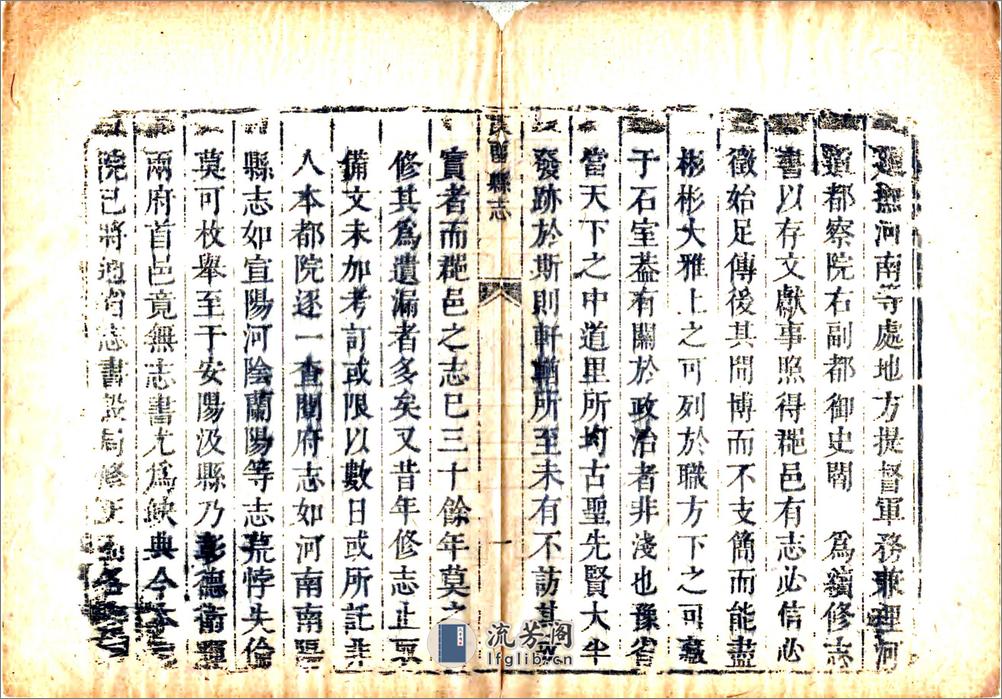 巡撫河南等處地方提督軍務兼理河
道都察院右副都御史閻　為續修志
書以存文獻事照得郡邑有志必信必
徵始足傳後其間博而不支簡而能盡
彬彬大雅上之可列於職方下之可藏
于石室蓋有關於政治者非淺也豫省
當天下之中道里所均古聖先賢大半
發跡於斯則軒輶所至未有不訪其
縣志
一
實者而郡邑之志已三十餘年莫之
修其為遺漏者多矣又昔年修志止
備文未加考訂或限以數日或所託非
人本都院逐一查閱府志如河南南陽
縣志如宜陽河陰蘭陽等志荒悖失倫
莫可枚舉至于安陽汲縣乃彰德衛輝
兩府首邑竟無志書尤為缺典今本
院已將通省志書設局修
流芳阁
lfglib.cn